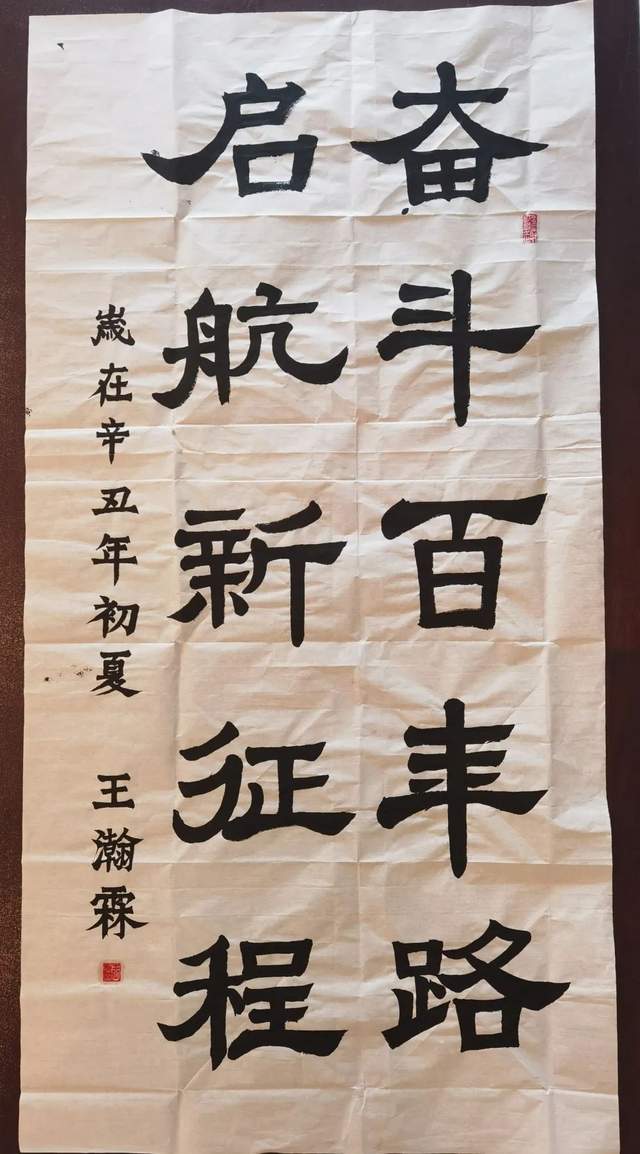 奋斗百年路
启航新征程
歳在辛丑年初夏 王瀚霖